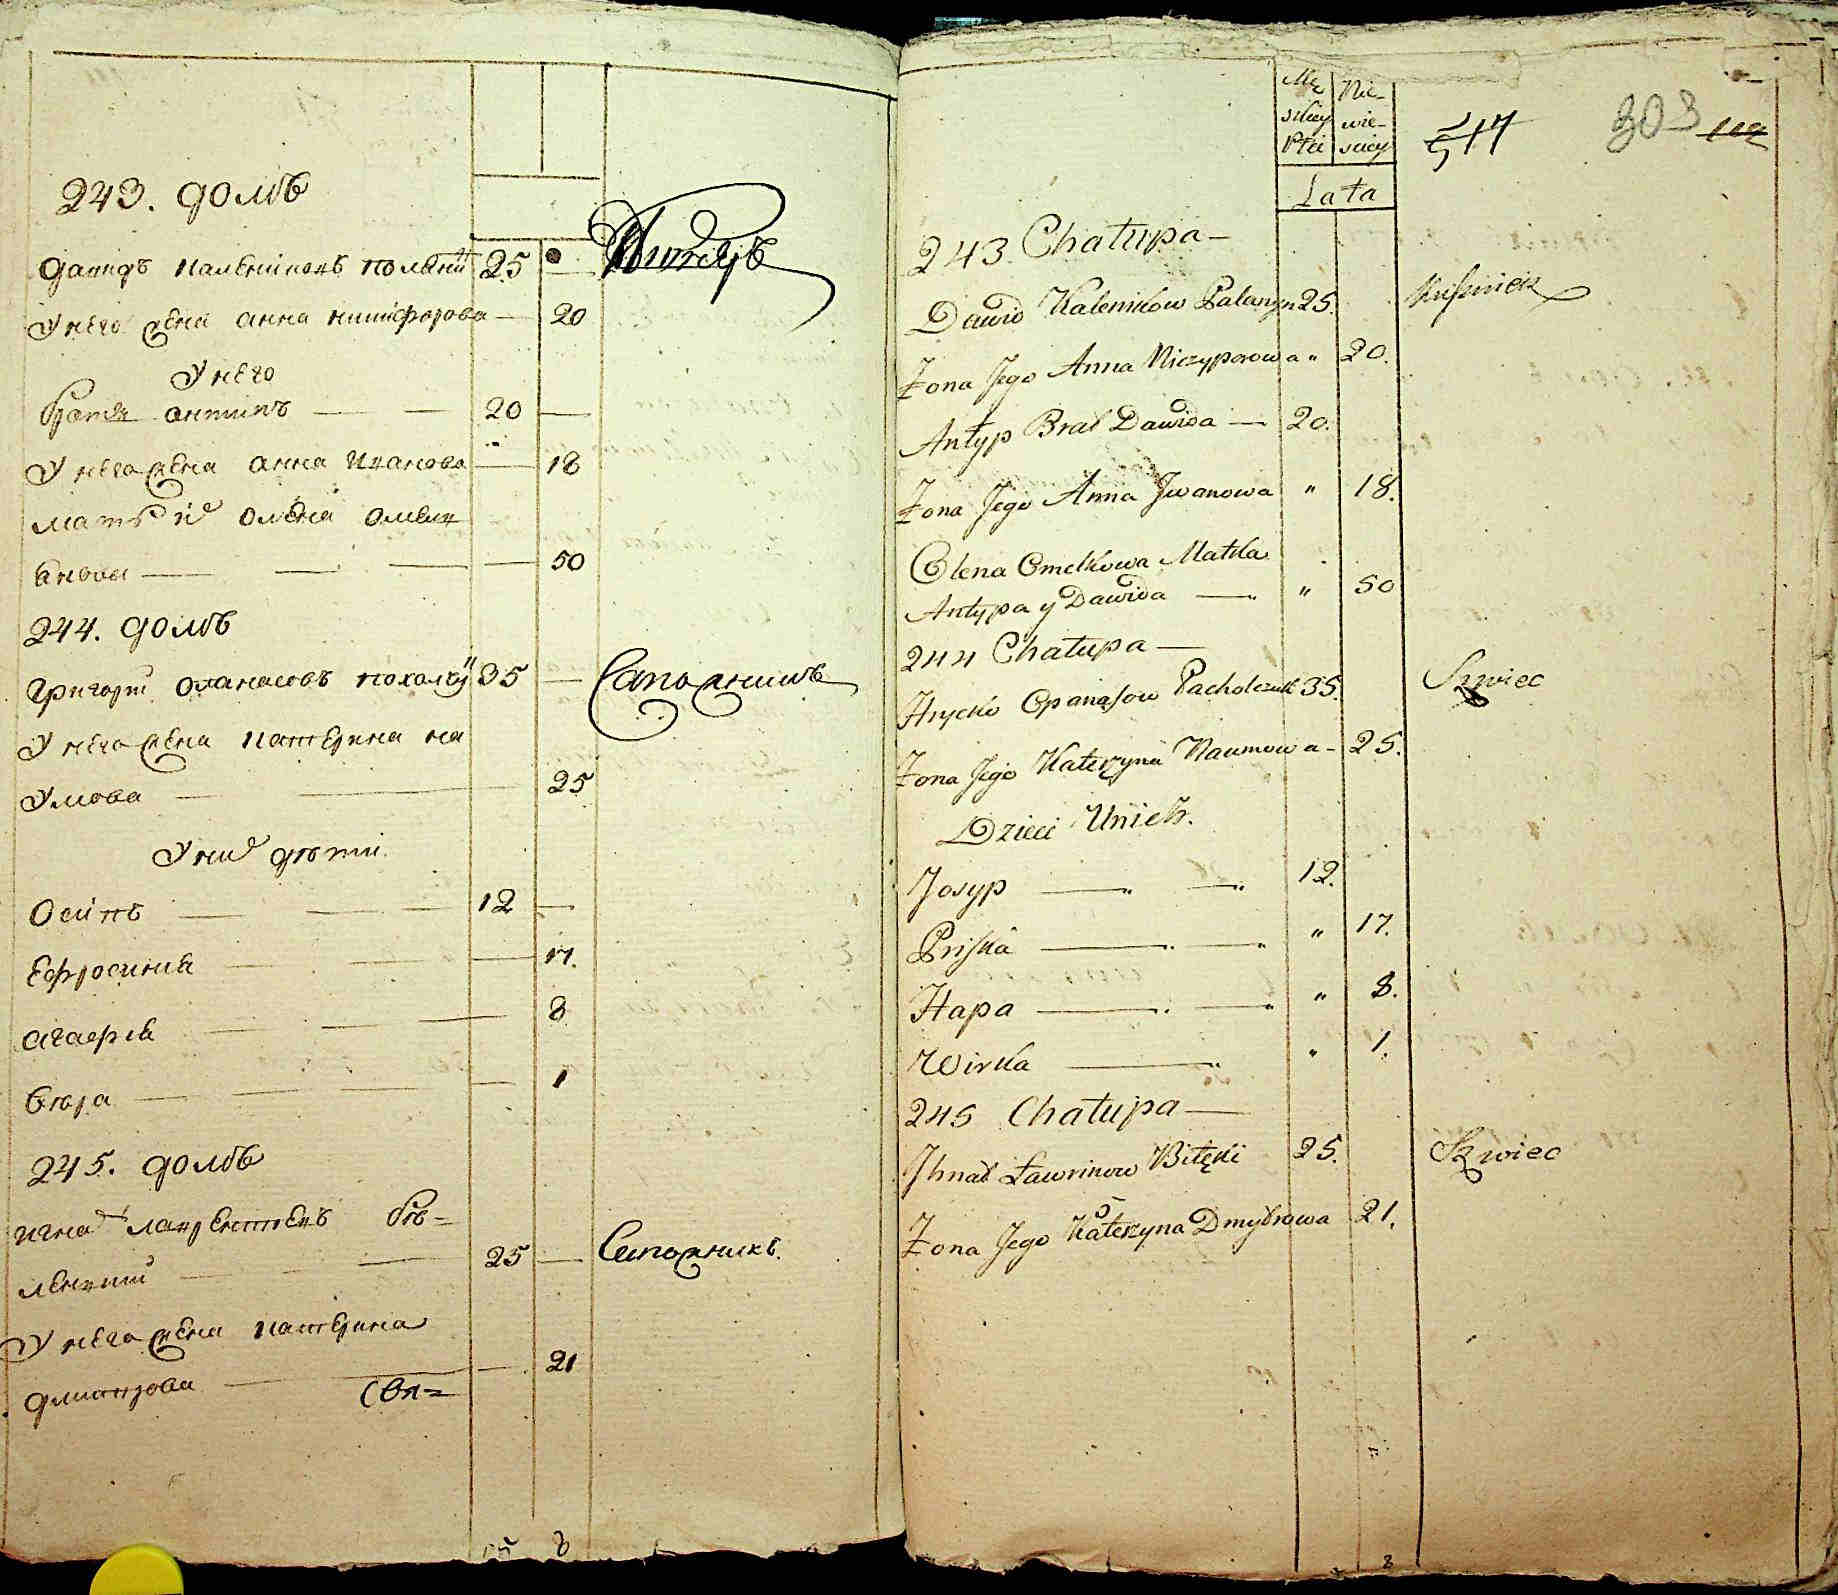 243. домъ
давидъ калениковъ 25 —
У него жена анна никифорова — 20
У него
братъ антипъ — — 20 —
У него жена анна иванова — 18
мать их олена омеля
нова — — — — 50
244. домъ
григорий опанасовъ 35 — Сапожникъ
У него жена катерина на
умова — — 25
У них дети
Осипъ — — — 12 —
Ефросиния — — — 17.
агафия — — — 8
вера — — — — 1
245. домъ
игнат лаврентиевъ би=
ленкий — — — 25 — Сапожникъ.
У него жена катерина
дмитрова — — — 21
8
Mę Nie-
skiey wie-
Płci sciey
517 303
Lata
243 Chałupa —
Dawid Kalenikow 25. Kuśnierz
Żona Jego Anna Niczyporowa " 20.
Antyp Brat Dawida — 20.
Żona Jego Anna Jwanowa " 18.
Olena Omelkowa Matka
Antypa y Dawida — " 50
244 Chałupa —
Hrycko Opanasow Pacholczuk 35. Szwiec
Żona Jego Katerzyna Naumowa - 25.
Dzieci Unich.
Josyp — — 12.
Priska — — " 17.
Hapa — — " 8.
Wirka — " 1.
245 Chałupa —
Jhnat Ławrinow 25. Szwiec
Żona Jego Katerzyna Dmytrowa 21.
8